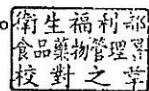 。
衛生福利部
食品藥物管理署
校對之章